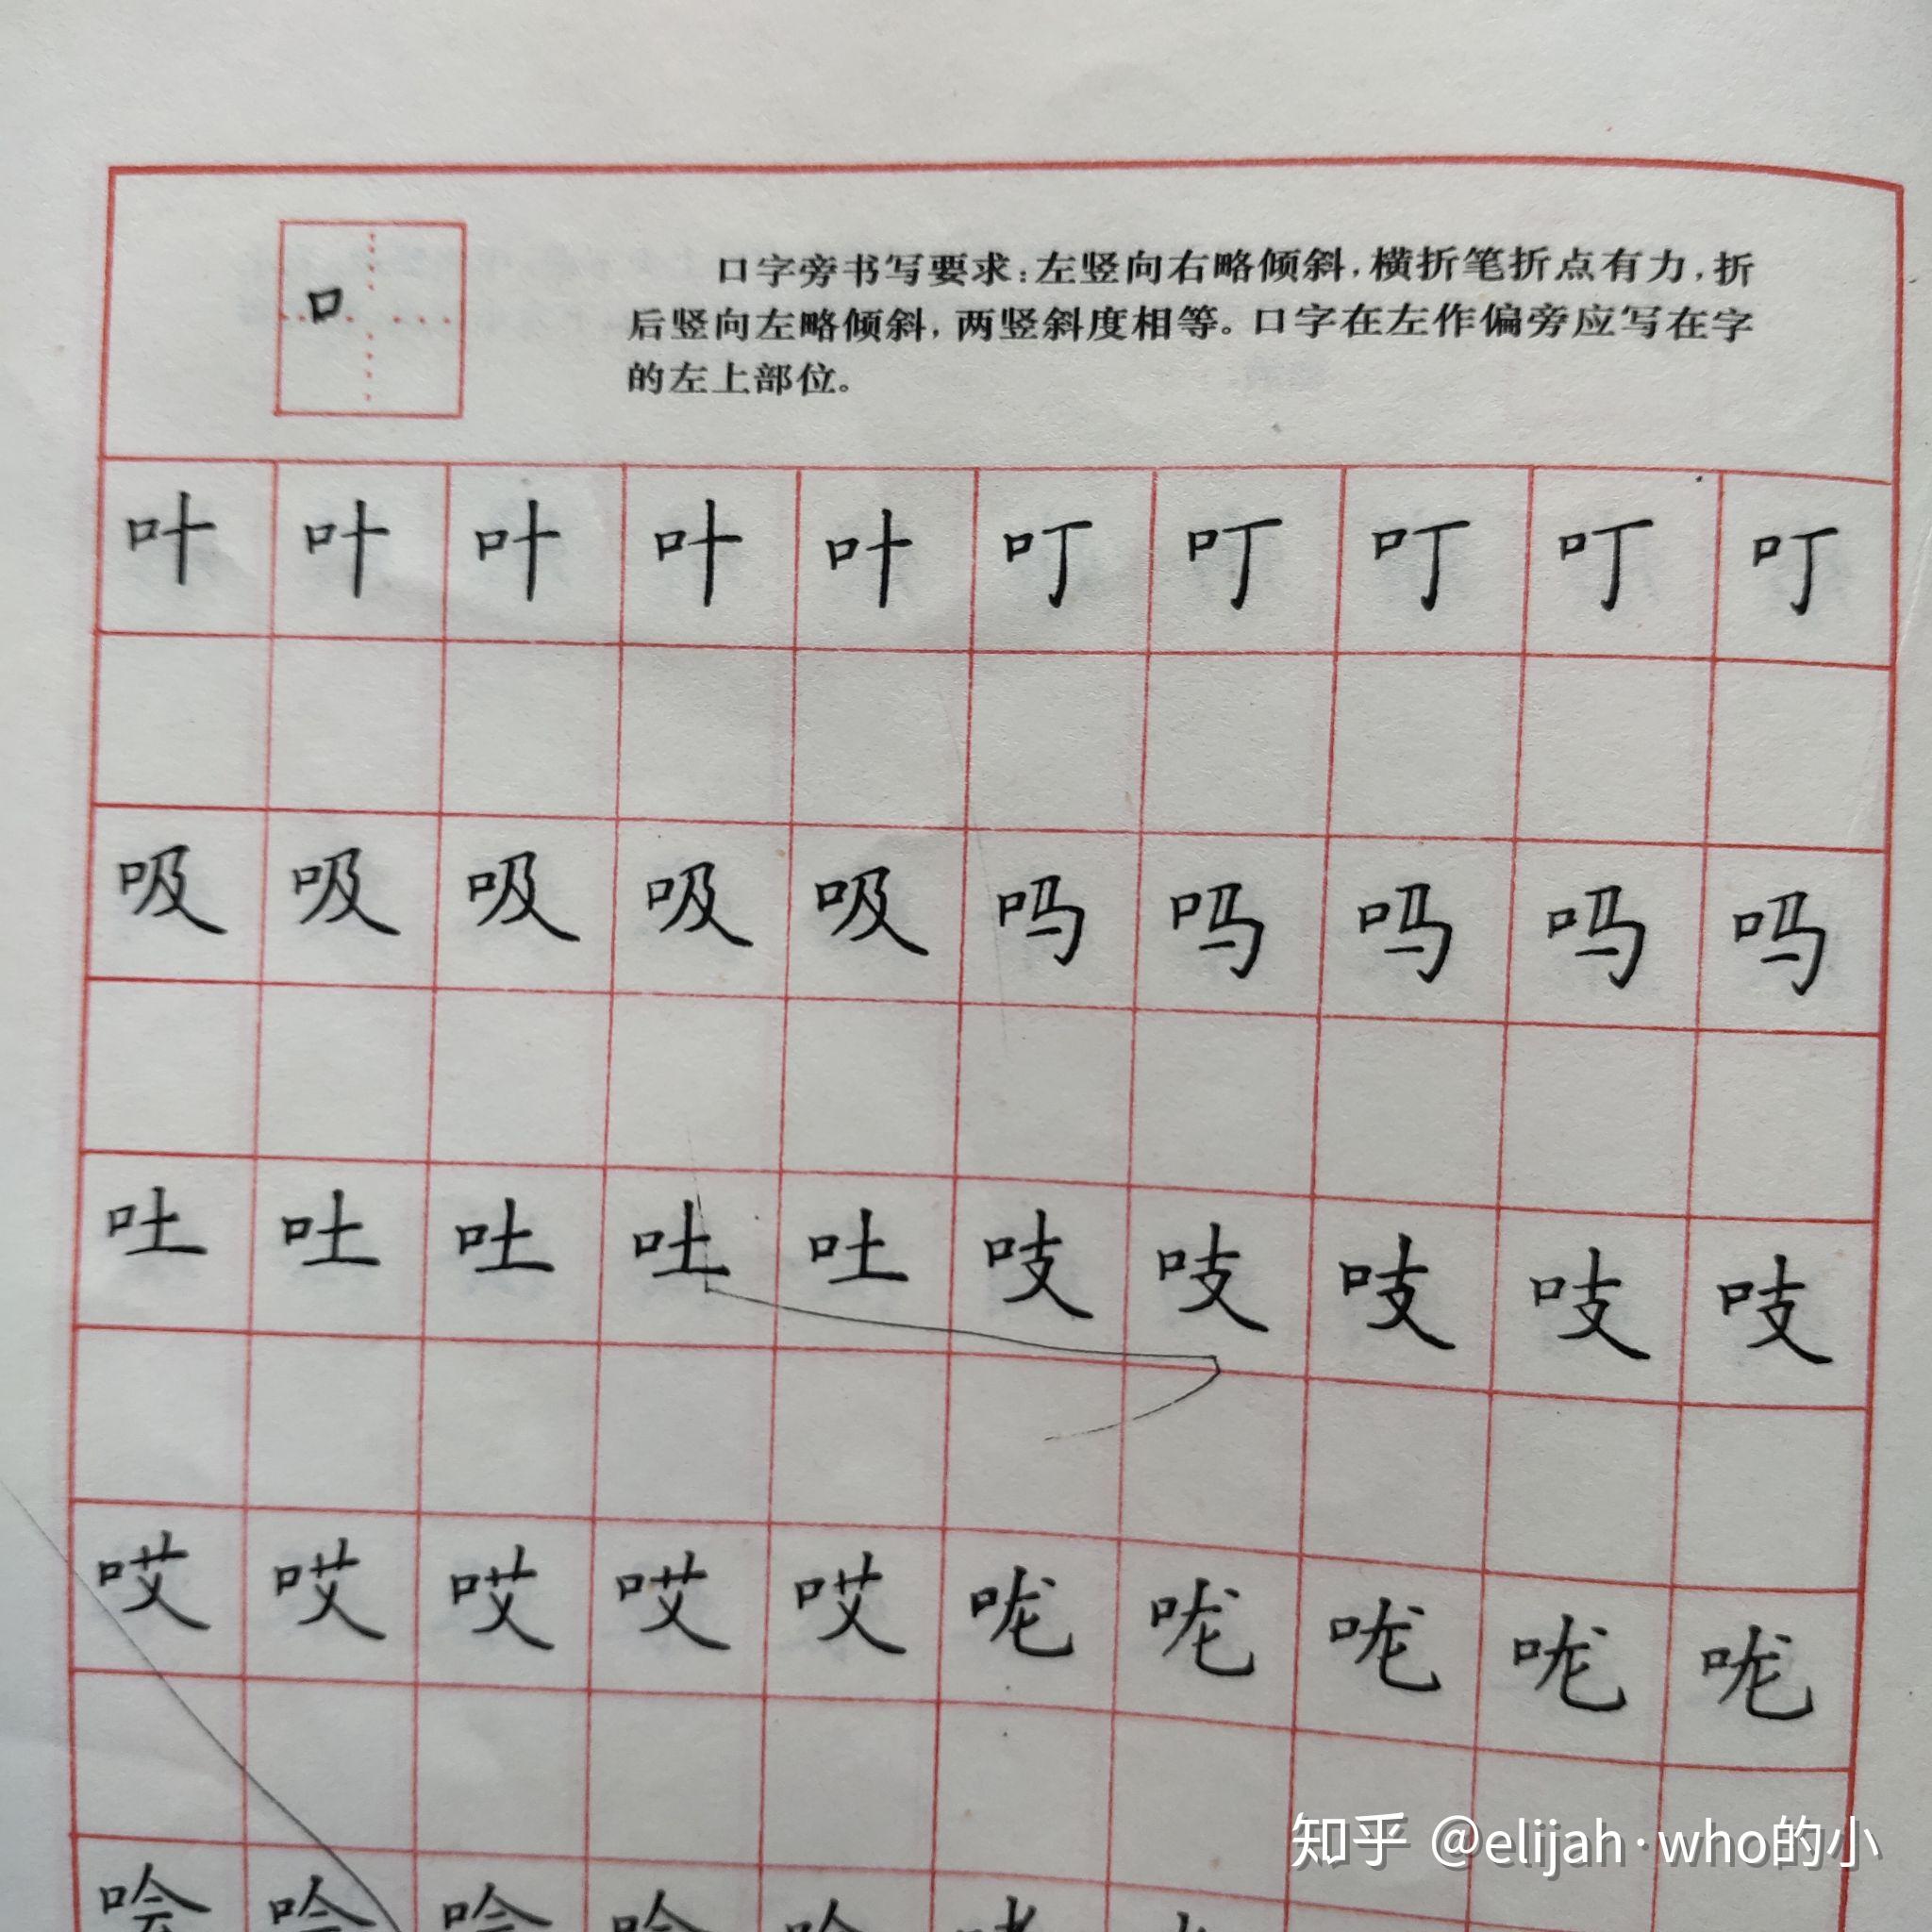 口
口字旁书写要求:左竖向右略倾斜,横折笔折点有力,折
后竖向左略倾斜,两竖斜度相等。口字在左作偏旁应写在字
的左上部位。
叶 叶 叶 叶 叶 叮 叮 叮 叮 叮
吸 吸 吸 吸 吸 吗 吗 吗 吗 吗
吐 吐 吐 吐 吐 吱 吱 吱 吱 吱
哎 哎 哎 哎 哎 咙 咙 咙 咙 咙
知乎 @elijah·who的小